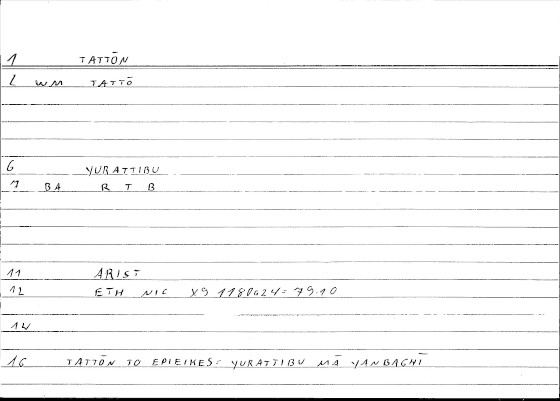 1 TATTŌN
2 WM TATTŌ
6 YURATTIBU
7 BA R T B
11 ARIST
12 ETH NIC X9 1180a24 = 79.10
14
16 TATTŌN TO EPIEIKES = YURATTIBU MĀ YANBAGHĪ